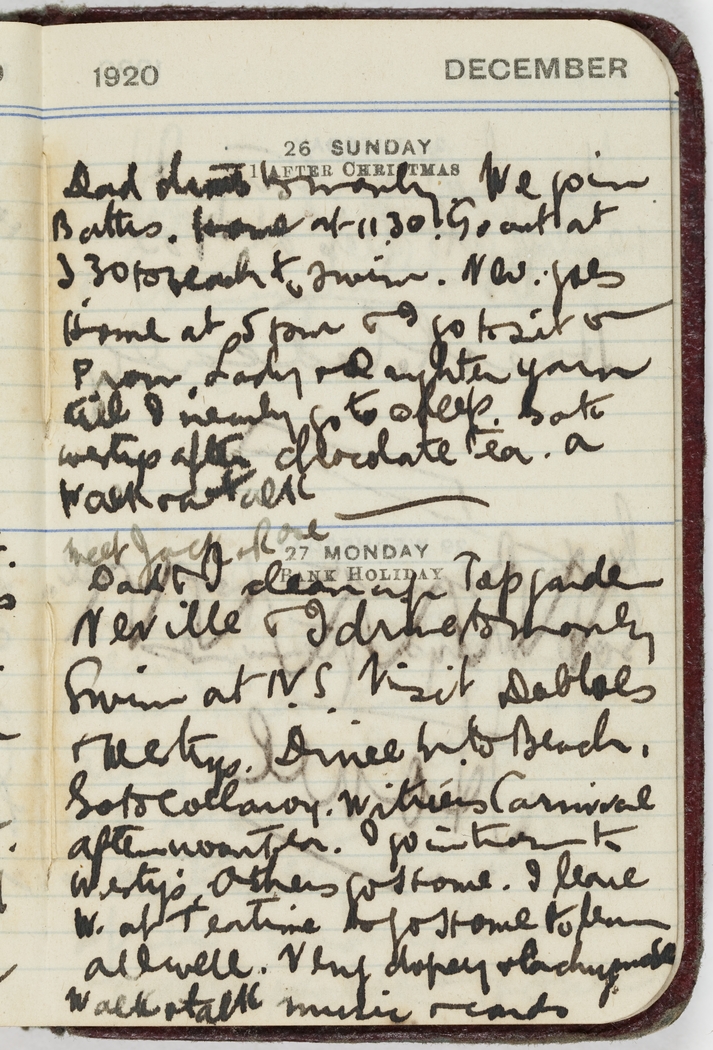 1920 DECEMBER
26 SUNDAY
1 AFTER CHRISTMAS
Dad to manly. We join
Batties. Home at 11 30. Go out at
3 30 to beach & swim. Nev. goes
Home at 5 pm & I go to sit on
Prom. Lady & Daughter yarn
till I nearly go to sleep. Back
westys after chocolate tea. a
Walk & a talk
meet Jack & Rose
27 MONDAY
BANK HOLIDAY
Dad & I clean up Top garden
Neville & I drive to manly
Swim at N.S. Visit
& Westys. Dinee to Beach.
Go to Collaroy. Witness Carnival
afterwards tea. I go in tram to
Westys. Others go Home. I leave
W. at Teatime to go Home & leave
all well. Very dopey
Walk & talk music & cards